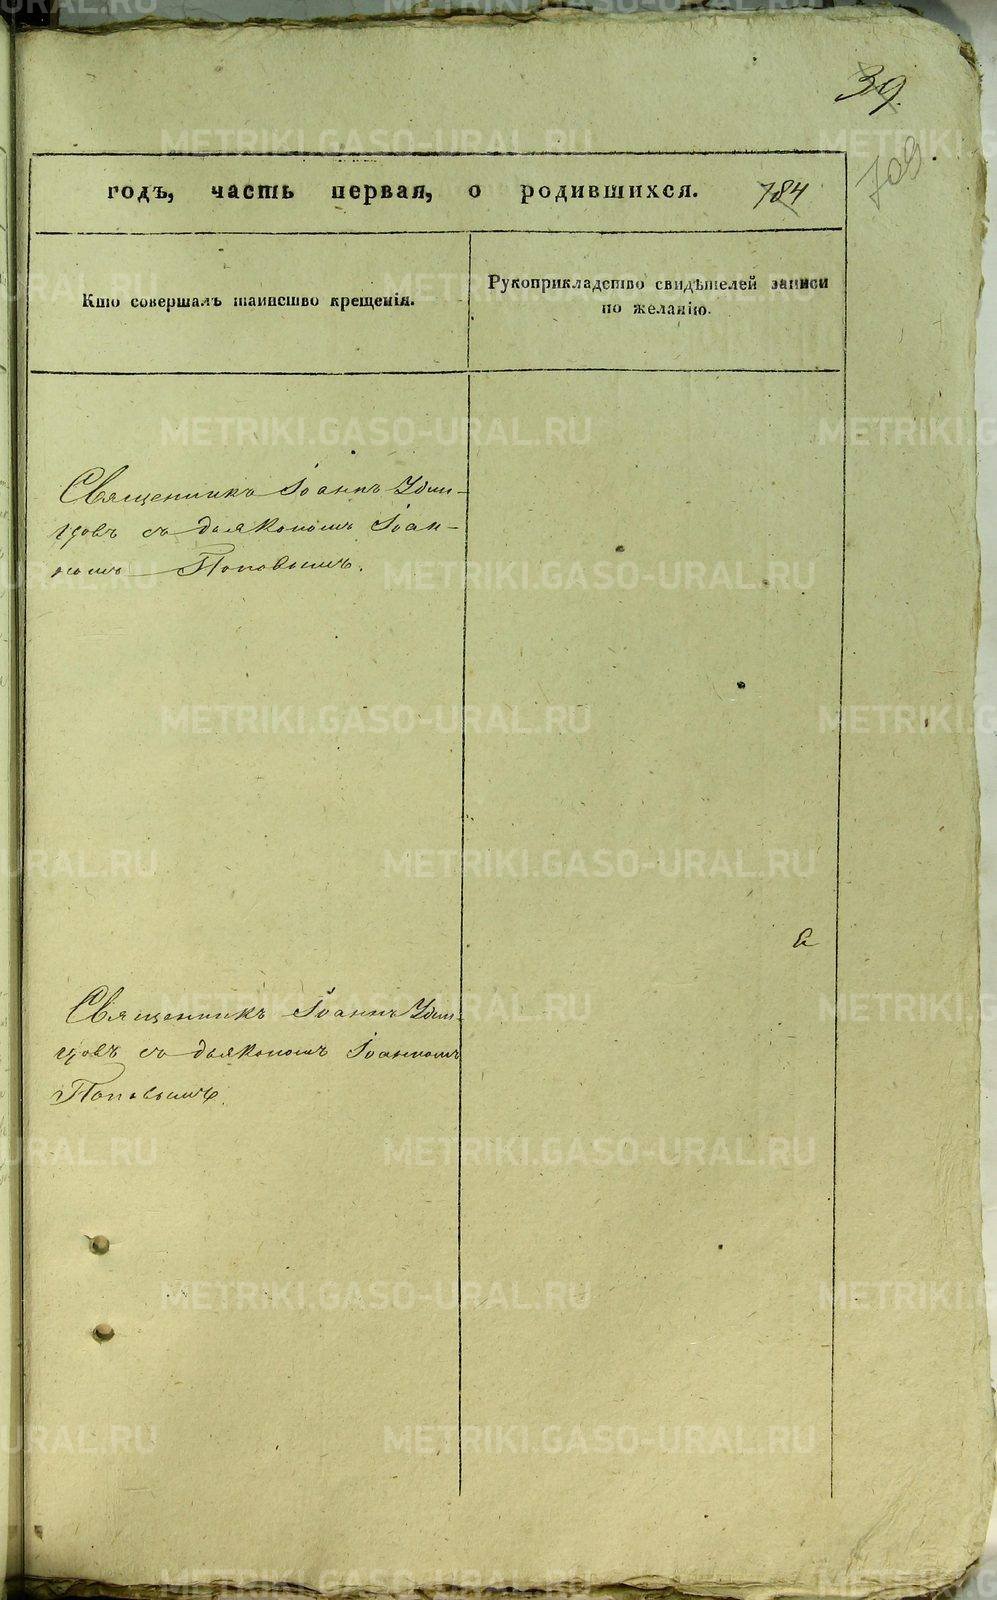 39.
709.
годъ, часть первая, о родившихся. 784
Кто совершалъ таинство крещенія.
Рукоприкладство свидѣтелей записи
по желанію.
Священникъ Іоаннъ Удин-
цовъ съ дьякономъ Іоан-
номъ Поповымъ.
Священникъ Іоаннъ Удин-
цовъ съ дьякономъ Іоанномъ
Поповымъ.
METRIKI.GASO-URAL.RU